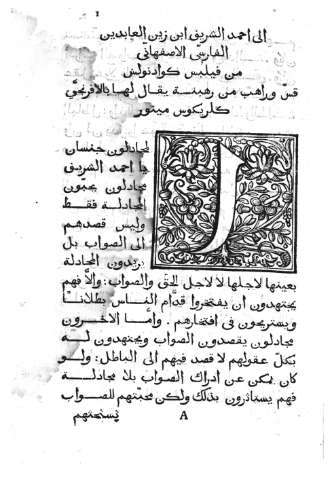 1
الى احمد الشريف ابن زين العابدين
الفارسّى الاصفهانّى
من فيلبس كوادنولس
قسّ وراهب من رهبنة يقال لها بالافرنجيّ
كلريكوس مينور
ا
لمجادلون جنسان
يا احمد الشريف
مجادلون يحبّون
المجادلة فقط
وليس قصدهم
الى الصواب بل
يريدون المجادلة
بعينها لاجلها لا لاجل الحقّ والصواب: والاّ فهم
يجتهدون ان يفتخروا قدّام الناس بطلانـا
ويستريحون فى افتخارهم. وامّا الاخرون
مجادلون يقصدون الصواب ويجتهدون لـه
بكلّ عقولهم لا قصد فيهم الى الباطل: ولـو
كان يمكن عن ادراك الصواب بلا مجادلـة
فهم يستاثرون بذلك ولكن محبّتهم للصواب
A
يستحثهم